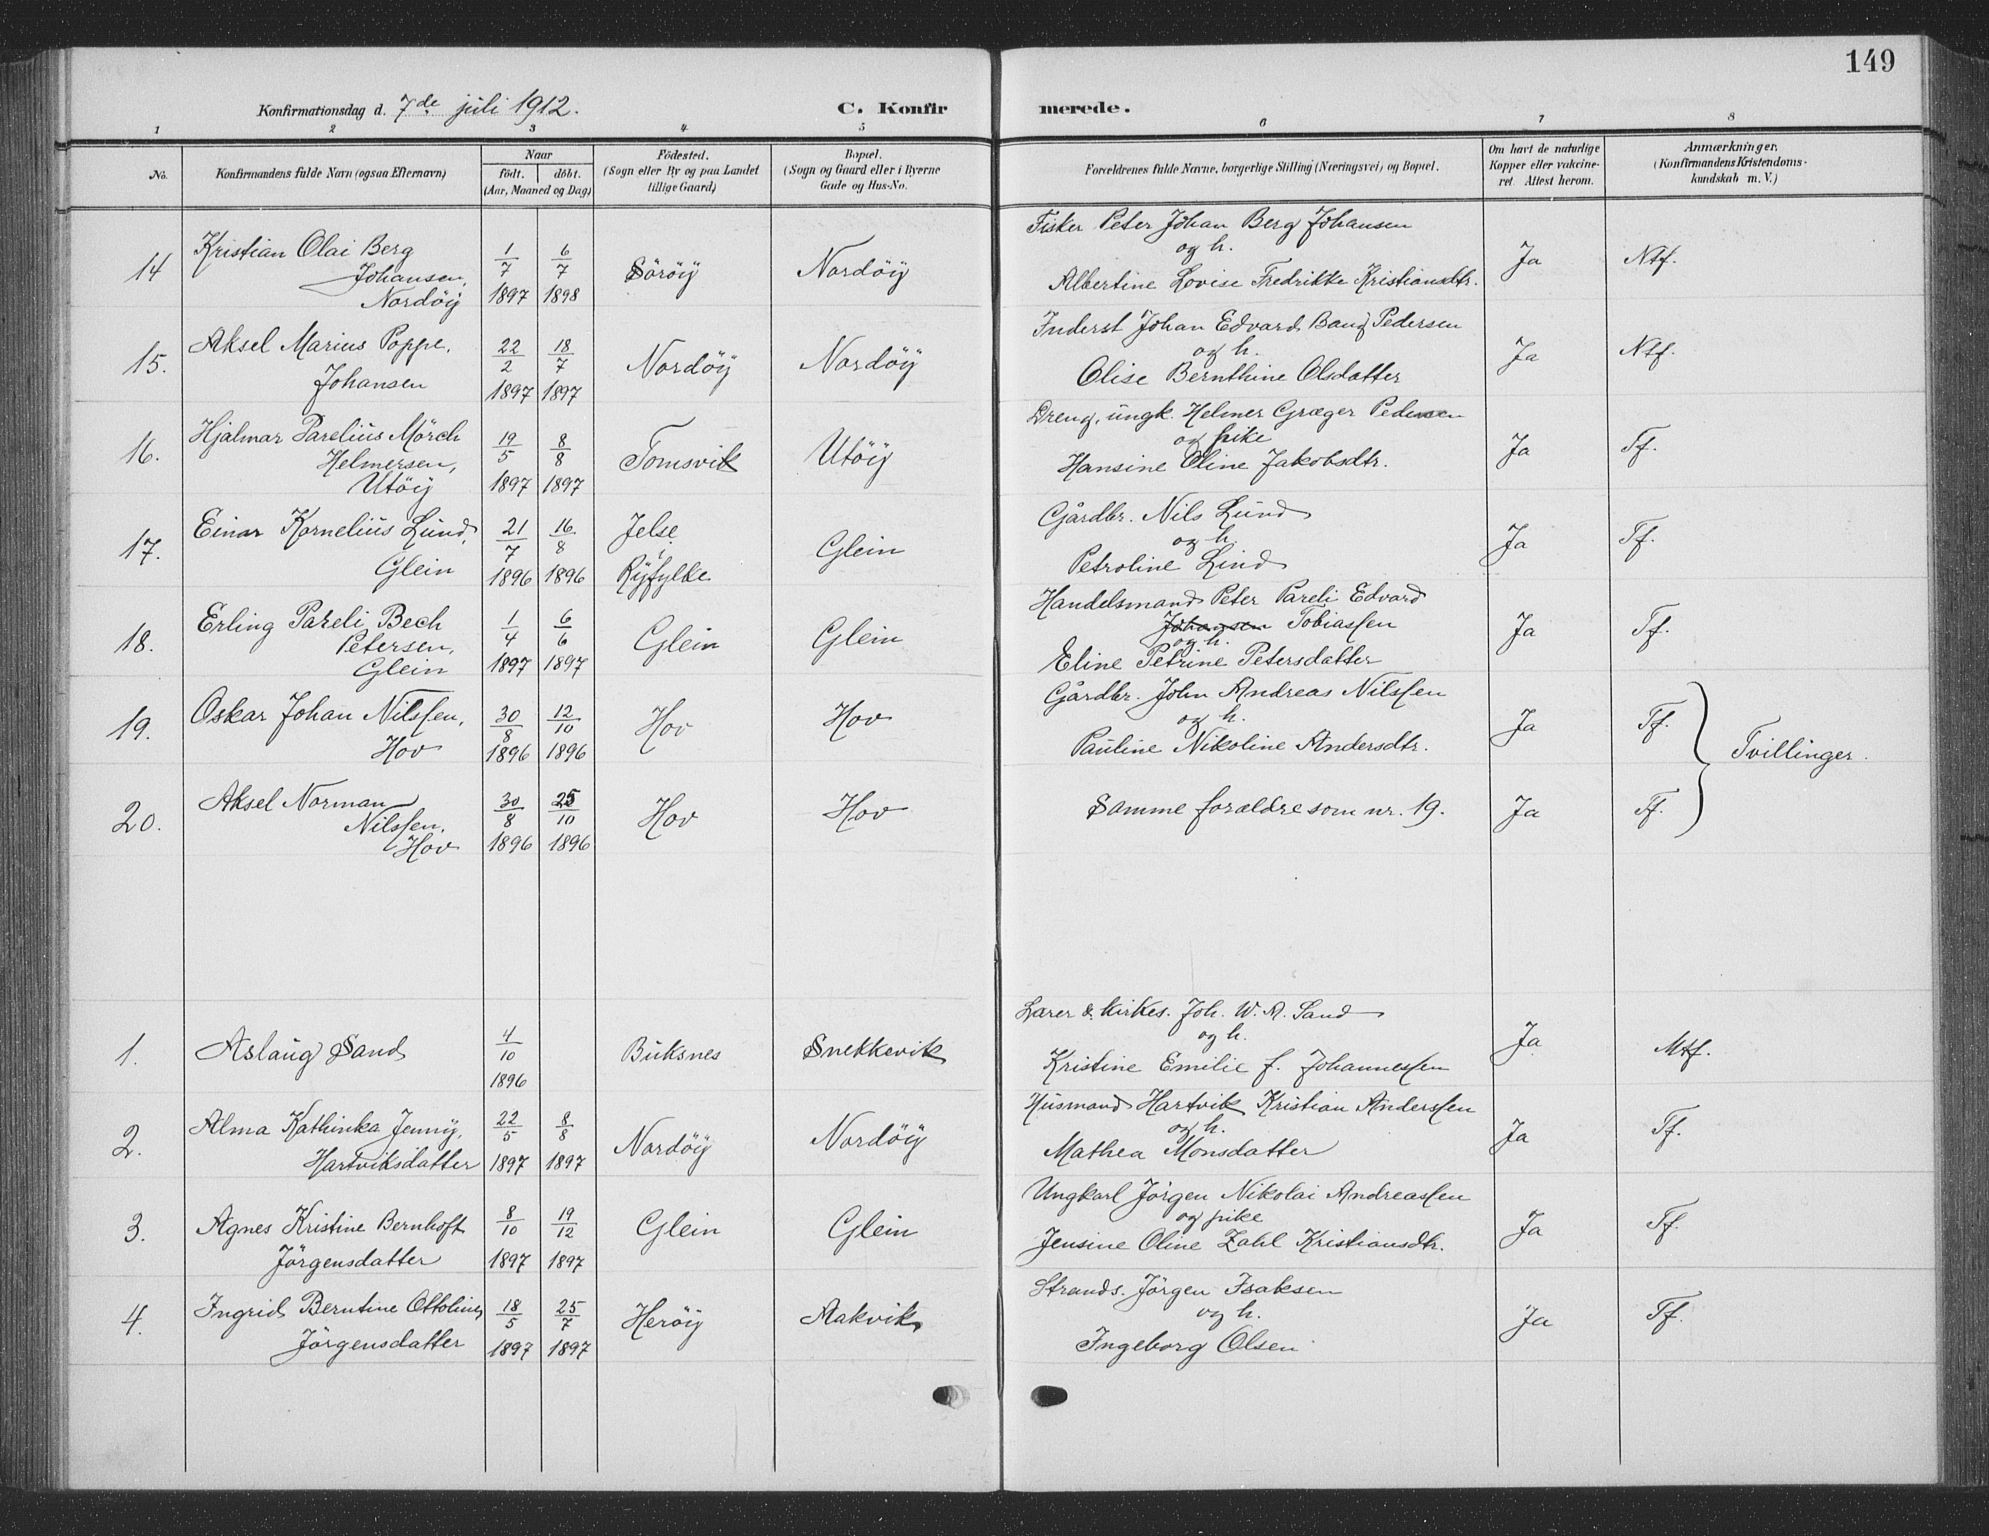 149
Konfirmationsdag d. 7de juli 1912.
C. Konfirmerede.
1 2 3 4 5 6 7 8
No.
Konfirmandens fulde Navn (ogsaa Efternavn)
Naar
født. døbt.
(Aar, Maaned og Dag)
Fødested.
(Sogn eller By og paa Landet
tillige Gaard)
Bopæl.
(Sogn og Gaard eller i Byerne
Gade og Hus-No.
Forældrenes fulde Navne, borgerlige Stilling (Næringsvei) og Bopæl.
Om havt de naturlige
Kopper eller vakcine-
ret. Attest herom.
Anmærkninger.
(Konfirmandens Kristendoms-
kundskab m. V.)
14 Kristian Olai Berg
Johansen,
Nordöÿ
1/7 1897
6/7 1898
Söröÿ
Nordöÿ
Fisker Peter Johan Berg Johansen
og h.
Albertine Lovise Fredrikke Kristiansdtr.
Ja
Ntf.
15. Aksel Marius Poppe,
Johansen
22/2 1897
18/7 1897
Nordöÿ
Nordöÿ
Inderst Johan Edvard Bang Pedersen
og h.
Olise Bernthine Olsdatter
Ja
Ntf.
16. Hjalmar Parelius Mörch
Helmersen,
Utöÿ
19/5 1897
8/8 1897
Tomsvik
Utöÿ
Dreng, ungk. Helmer Græger Pedersen
og pike
Hansine Oline Jakobsdtr.
Ja
Tf.
17. Einar Kornelius Lund,
Glein
21/7 1896
16/8 1896
Jelse,
Ryfylke
Glein
Gårdbr. Nils Lund
og h.
Petroline Lind
Ja
Tf.
18. Erling Pareli Bech
Petersen,
Glein
1/4 1897
6/6 1897
Glein
Glein
Handelsmand Peter Pareli Edvard
Johansen Tobiassen
og h.
Eline Petrine Petersdatter
Ja
Tf.
19. Oskar Johan Nilssen,
Hov
30/8 1896
12/10 1896
Hov
Hov
Gårdbr. John Andreas Nilssen
og h.
Pauline Nikoline Andersdtr.
Ja
Tf.
Tvillinger.
20. Aksel Norman
Nilssen,
Hov
30/8 1896
25/10 1896
Hov
Hov
Samme forældre som nr. 19.
Ja
Tf.
1. Aslaug Sand
4/10 1896
Buksnes
Snekkevik
Lærer & kirkes. Joh. W. A. Sand
og h.
Kristine Emilie f. Johannessen
Ja
Mtf.
2. Alma Kathinka Jenny,
Hartviksdatter
22/5 1897
8/8 1897
Nordöÿ
Nordöÿ
Husmand Hartvik Kristian Anderssen
og h.
Mathea Monsdatter
Ja
Tf.
3. Agnes Kristine Bernhoft
Jörgensdatter
8/10 1897
19/12 1897
Glein
Glein
Ungkarl Jörgen Nikolai Andreassen
og pike
Jensine Oline Zahl Kristiansdtr.
Ja
Tf.
4. Ingrid Berntine Ottoline
Jörgensdatter
18/5 1897
25/7 1897
Heröÿ
Aakvik
Strands. Jörgen Isaksen
og h.
Ingeborg Olsen
Ja
Tf.